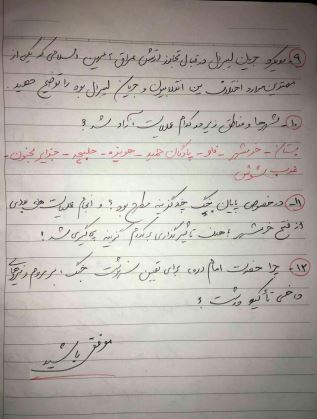 ۹- رویکرد جریان لیبرال در قبال تجاوز ارتش عراق به میهن اسلامی که یکی از
مهمترین موارد اختلاف بین انقلابیون و جریان لیبرال بود را توضیح دهید.
۱۰- شهرها و مناطق زیر در کدام عملیات آزاد شد؟
بستان - خرمشهر - فاو - پادگان حمید - هویزه - حلبچه - جزایر مجنون -
غرب شوش
۱۱- درخصوص پایان جنگ چند گزینه مطرح بود؟ و انجام عملیات های بعدی
از فتح خرمشهر با هدف تأثیرگذاری بر کدام گزینه پیگیری شد؟
۱۲- چرا حضرت امام (ره) برای تعیین سرنوشت جنگ، بر مردم و نیروهای
داخلی تأکید داشت؟
موفق باشید